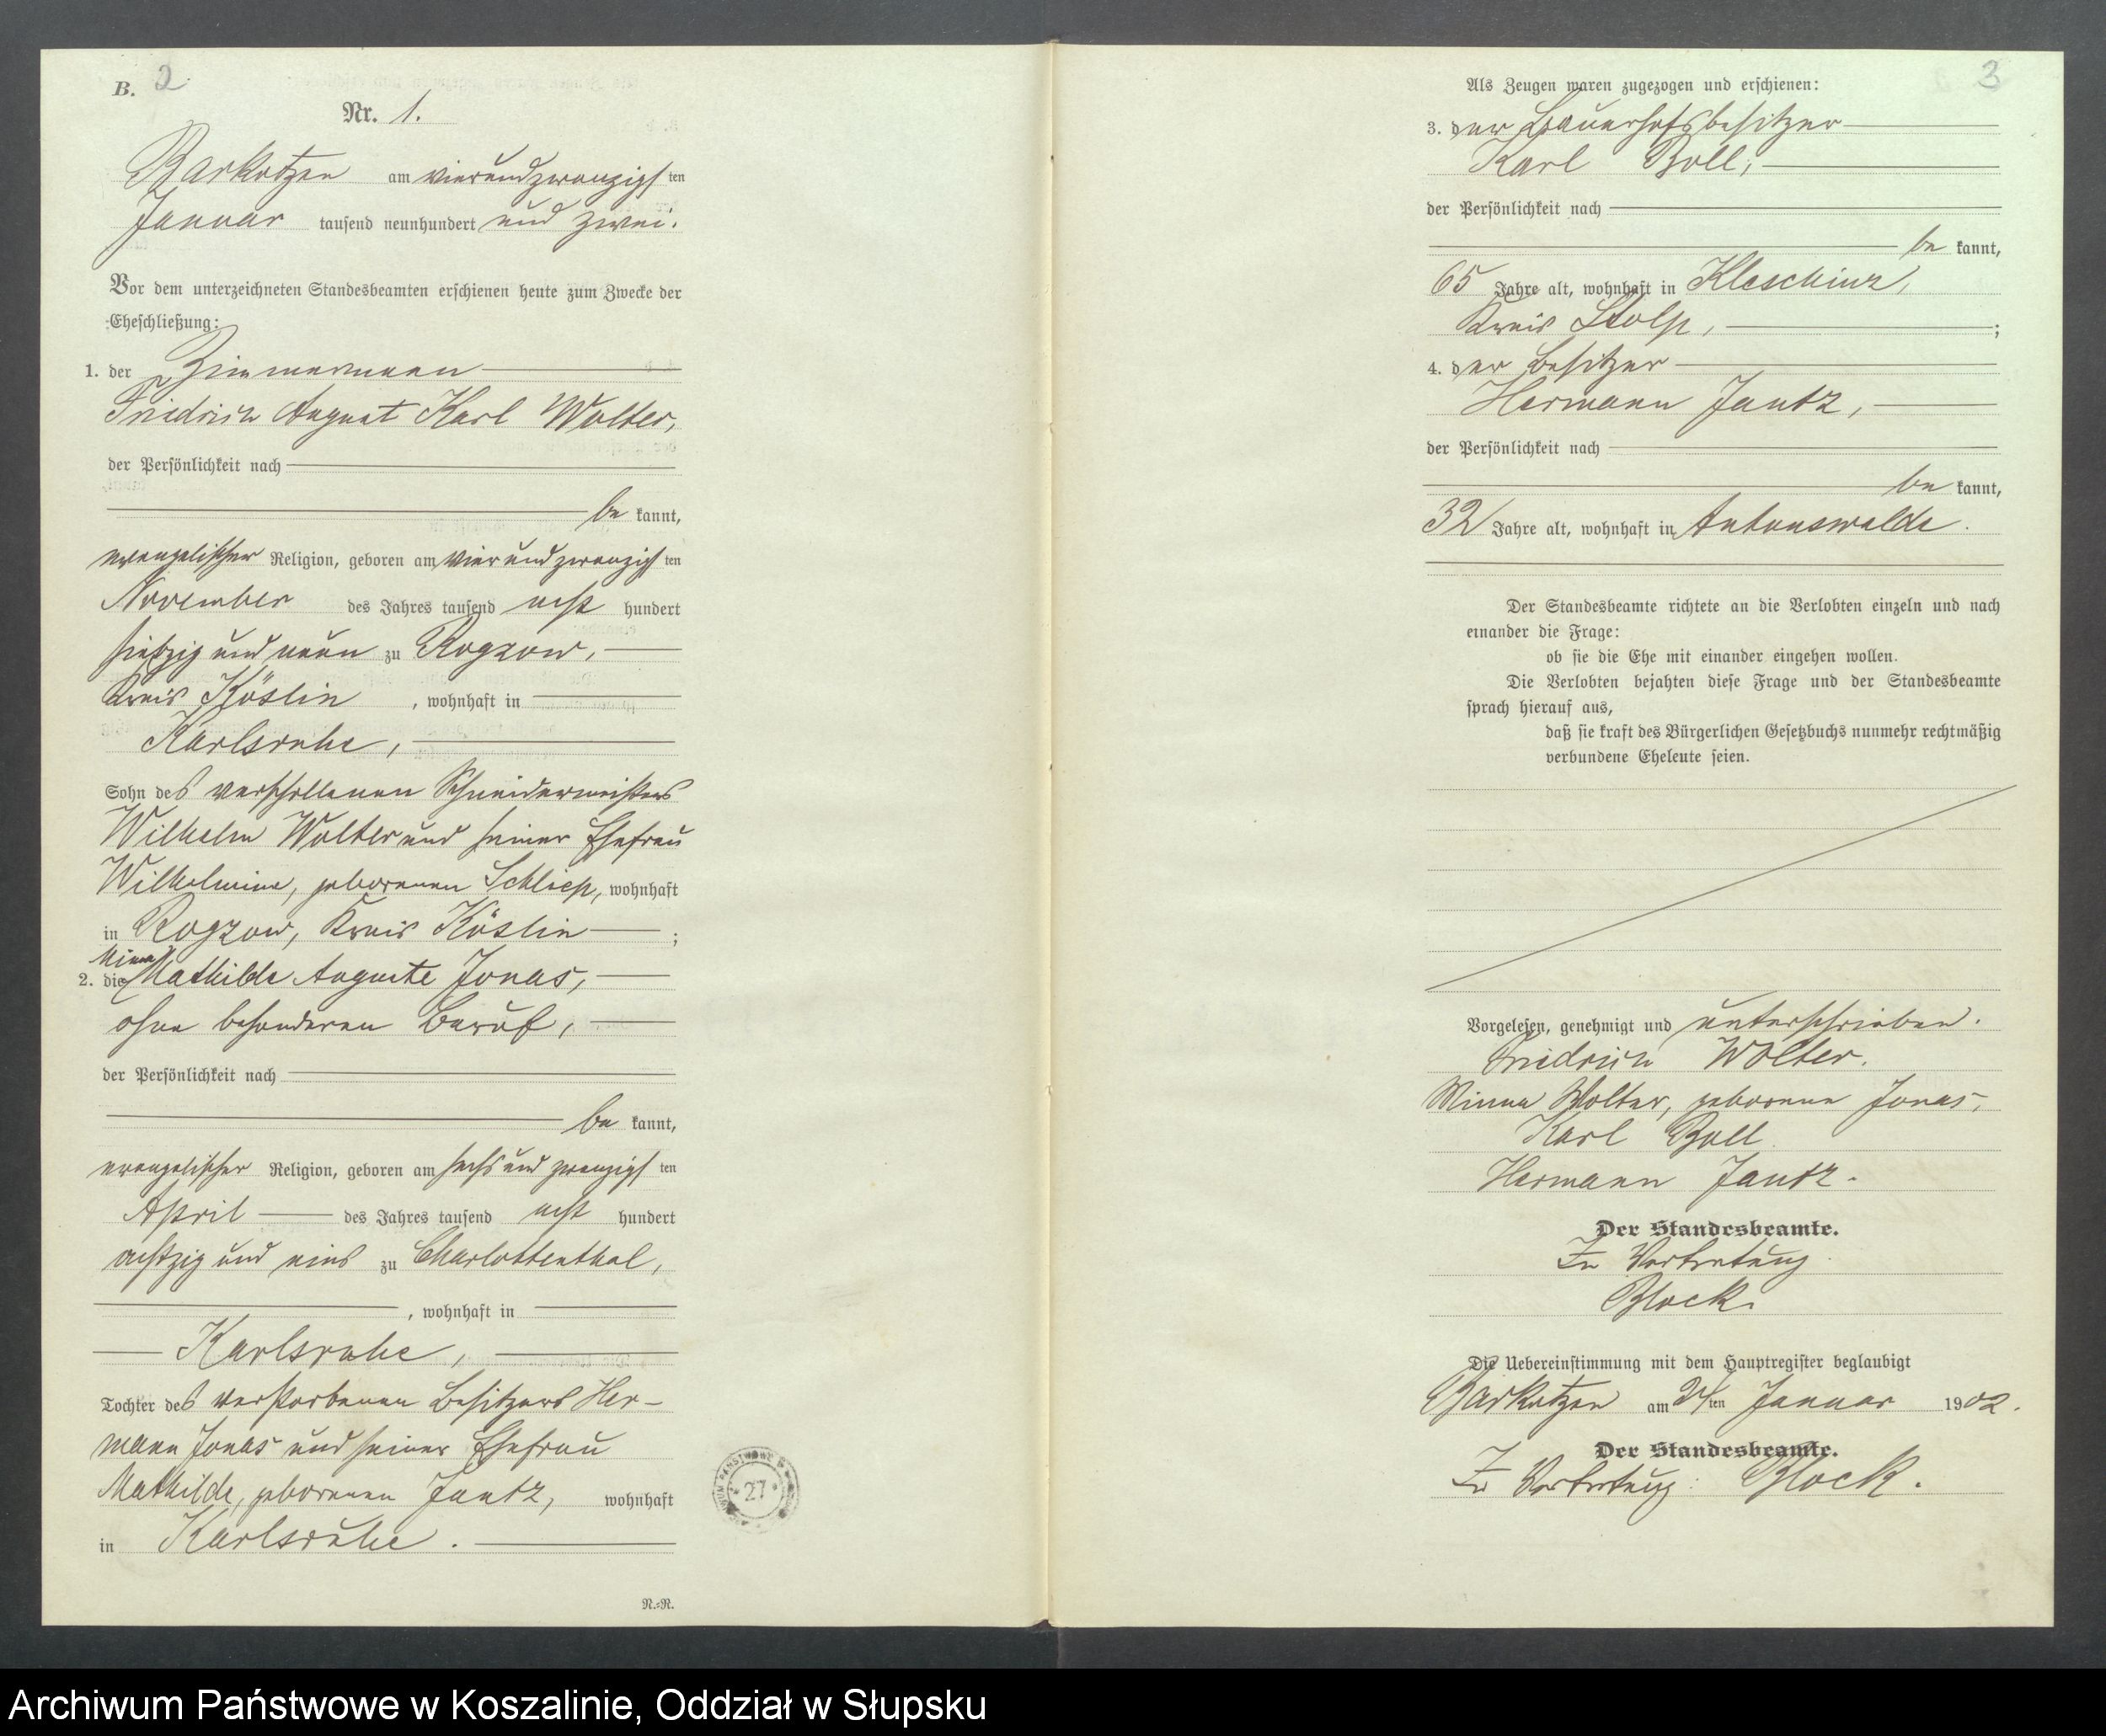 B. 2
Nr. 1.
Barkotzen am vierundzwanzigsten
Januar tausend neunhundert und zwei.
Vor dem unterzeichneten Standesbeamten erschienen heute zum Zwecke der
Eheschließung:
1. der Zimmermann
Friedrich August Karl Wolter,
der Persönlichkeit nach
bekannt,
evangelischer Religion, geboren am vierundzwanzigsten
November des Jahres tausend acht hundert
siebzig und neun zu Rogzow,
Kreis Köslin, wohnhaft in
Karlsruhe,
Sohn des verschollenen Schneidermeisters
Wilhelm Wolter und seiner Ehefrau
Wilhelmine, geborenen Schliep, wohnhaft
in Rogzow, Kreis Köslin;
Minna
2. die Mathilde Auguste Jonas,
ohne besonderen Beruf,
der Persönlichkeit nach
bekannt,
evangelischer Religion, geboren am sechsundzwanzigsten
April des Jahres tausend acht hundert
achtzig und eins zu Charlottenthal,
, wohnhaft in
Karlsruhe,
Tochter des verstorbenen Besitzers Her-
mann Jonas und seiner Ehefrau
Mathilde, geborenen Jantz, wohnhaft
in Karlsruhe.
R.=R.
27
3
Als Zeugen waren zugezogen und erschienen:
3. der Bauerhofsbesitzer
Karl Boll,
der Persönlichkeit nach
bekannt,
65 Jahre alt, wohnhaft in Kleschinz,
Kreis Stolp,;
4. der Besitzer
Hermann Jantz,
der Persönlichkeit nach
bekannt,
32 Jahre alt, wohnhaft in Antonswalde.
Der Standesbeamte richtete an die Verlobten einzeln und nach
einander die Frage:
ob sie die Ehe mit einander eingehen wollen.
Die Verlobten bejahten diese Frage und der Standesbeamte
sprach hierauf aus,
daß sie kraft des Bürgerlichen Gesetzbuchs nunmehr rechtmäßig
verbundene Eheleute seien.
Vorgelesen, genehmigt und unterschrieben.
Friedrich Wolter.
Minna Wolter, geborene Jonas,
Karl Boll
Hermann Jantz.
Der Standesbeamte.
In Vertretung
Block.
Die Uebereinstimmung mit dem Hauptregister beglaubigt
Barkotzen am 24ten Januar 1902.
Der Standesbeamte.
In Vertretung: Block.
Archiwum Państwowe w Koszalinie, Oddział w Słupsku